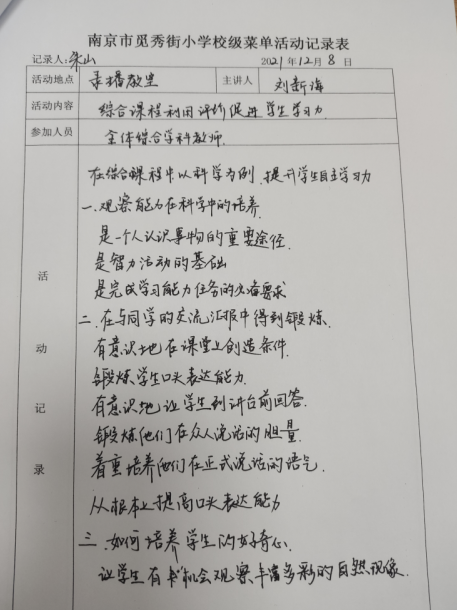 南京市觅秀街小学校级菜单活动记录表
记录人:朱山 2021年12月8日
活动地点 录播教室 主讲人 刘新海
活动内容 综合课程利用评价促进学生学习力
参加人员 全体综合学科教师.
活动记录
在综合课程中以科学为例.提升学生自主学习力
一.观察能力在科学中的培养.
是一个人认识事物的重要途径.
是智力活动的基础
是完成学习能力任务的必备要求
二.在与同学的交流汇报中得到锻炼.
有意识地在课堂上创造条件.
锻炼学生口头表达能力.
有意识地让学生到讲台前回答.
锻炼他们在众人说话的胆量.
着重培养他们在正式说话的语气.
从根本上提高口头表达能力
三.如何培养学生的好奇心.
让学生有机会观察丰富多彩的自然现像.